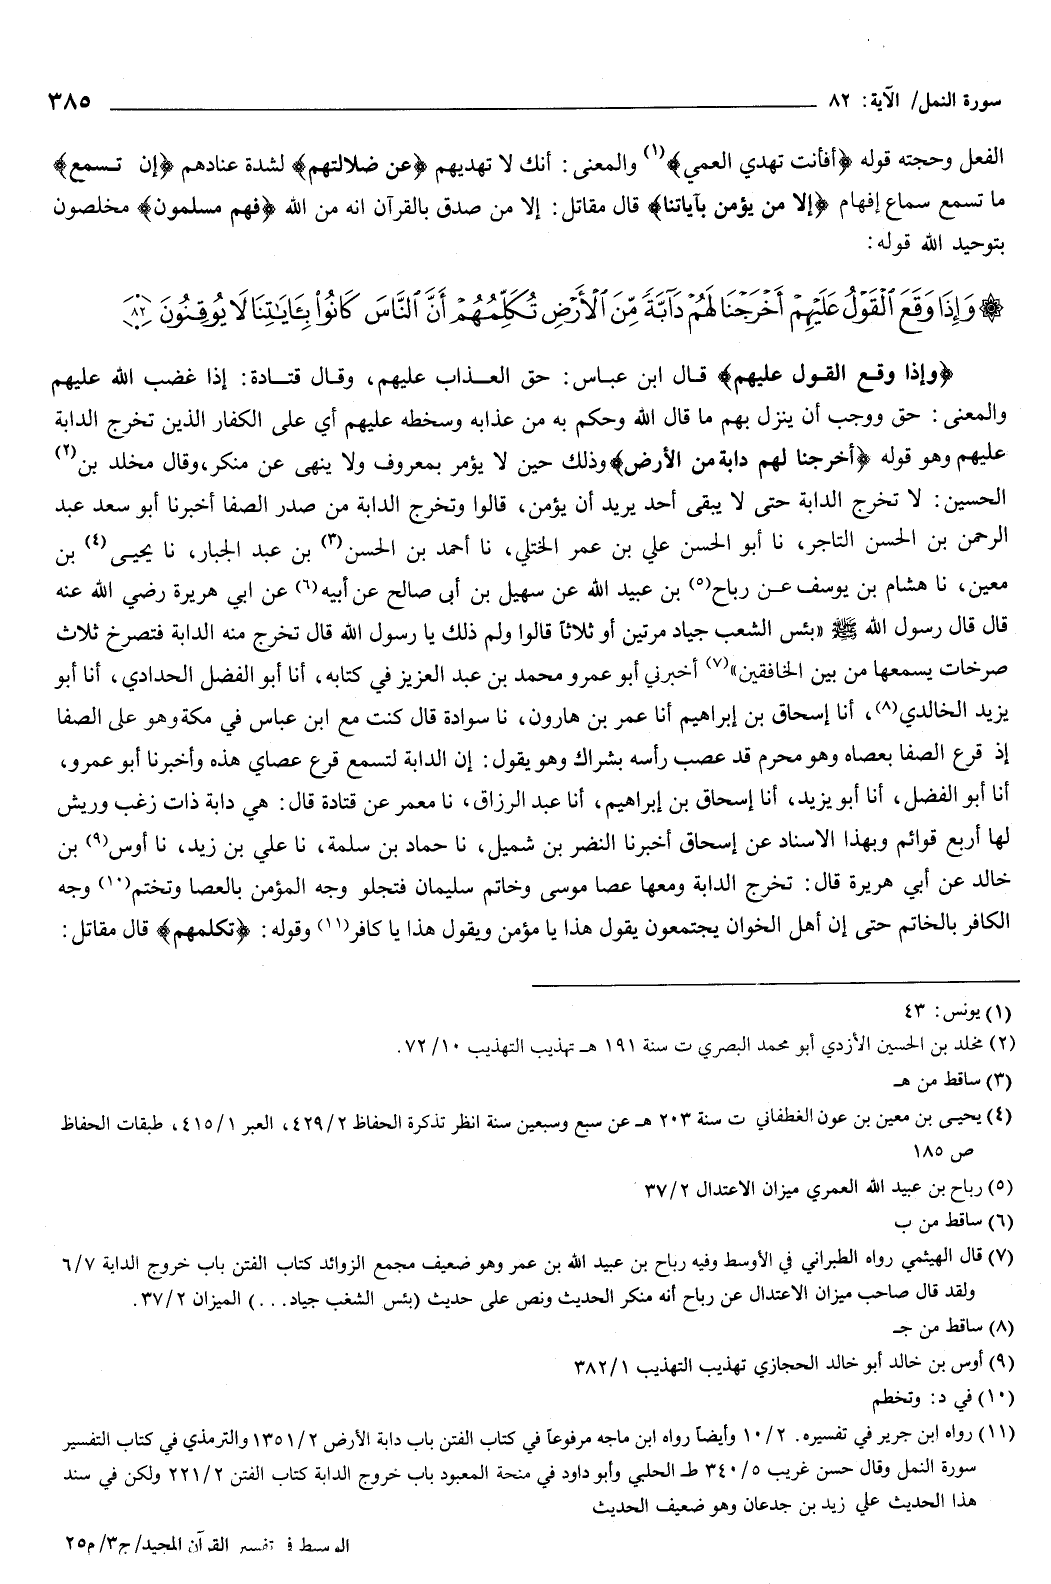 سورة النمل/ الآية: ٨٢ ٣٨٥
الفعل وحجته قوله ﴿أفأنت تهدي العمي﴾(١) والمعنى: أنك لا تهديهم ﴿عن ضلالتهم﴾ لشدة عنادهم ﴿إن تسمع﴾
ما تسمع سماع إفهام ﴿إلا من يؤمن بآياتنا﴾ قال مقاتل: إلا من صدق بالقرآن انه من الله ﴿فهم مسلمون﴾ مخلصون
بتوحيد الله قوله:
۞ وَإِذَا وَقَعَ ٱلْقَوْلُ عَلَيْهِمْ أَخْرَجْنَا لَهُمْ دَآبَّةً مِّنَ ٱلْأَرْضِ تُكَلِّمُهُمْ أَنَّ ٱلنَّاسَ كَانُوا۟ بِـَٔايَـٰتِنَا لَا يُوقِنُونَ ٨٢
﴿وإذا وقع القول عليهم﴾ قال ابن عباس: حق العذاب عليهم، وقال قتادة: إذا غضب الله عليهم
والمعنى: حق ووجب أن ينزل بهم ما قال الله وحكم به من عذابه وسخطه عليهم أي على الكفار الذين تخرج الدابة
عليهم وهو قوله ﴿أخرجنا لهم دابة من الأرض﴾ وذلك حين لا يؤمر بمعروف ولا ينهى عن منكر، وقال مخلد بن(٢)
الحسين: لا تخرج الدابة حتى لا يبقى أحد يريد أن يؤمن، قالوا وتخرج الدابة من صدر الصفا أخبرنا أبو سعد عبد
الرحمن بن الحسن التاجر، نا أبو الحسن علي بن عمر الختلي، نا أحمد بن الحسن(٣) بن عبد الجبار، نا يحيى(٤) بن
معين، نا هشام بن يوسف عن رباح(٥) بن عبيد الله عن سهيل بن أبى صالح عن أبيه(٦) عن ابي هريرة رضي الله عنه
قال قال رسول الله ﷺ «بئس الشعب جياد مرتين أو ثلاثاً قالوا ولم ذلك يا رسول الله قال تخرج منه الدابة فتصرخ ثلاث
صرخات يسمعها من بين الخافقين»(٧) أخبرني أبو عمرو محمد بن عبد العزيز في كتابه، أنا أبو الفضل الحدادي، أنا أبو
يزيد الخالدي(٨)، أنا إسحاق بن إبراهيم أنا عمر بن هارون، نا سوادة قال كنت مع ابن عباس في مكة وهو على الصفا
إذ قرع الصفا بعصاه وهو محرم قد عصب رأسه بشراك وهو يقول: إن الدابة لتسمع قرع عصاي هذه وأخبرنا أبو عمرو،
أنا أبو الفضل، أنا أبو يزيد، أنا إسحاق بن إبراهيم، أنا عبد الرزاق، نا معمر عن قتادة قال: هي دابة ذات زغب وريش
لها أربع قوائم وبهذا الاسناد عن إسحاق أخبرنا النضر بن شميل، نا حماد بن سلمة، نا علي بن زيد، نا أوس(٩) بن
خالد عن أبي هريرة قال: تخرج الدابة ومعها عصا موسى وخاتم سليمان فتجلو وجه المؤمن بالعصا وتختم(١٠) وجه
الكافر بالخاتم حتى إن أهل الخوان يجتمعون يقول هذا يا مؤمن ويقول هذا يا كافر(١١) وقوله: ﴿تكلمهم﴾ قال مقاتل:
(١) يونس: ٤٣
(٢) مخلد بن الحسين الأزدي أبو محمد البصري ت سنة ١٩١ هـ تهذيب التهذيب ٧٢/١٠.
(٣) ساقط من هـ
(٤) يحيى بن معين بن عون الغطفاني ت سنة ٢٠٣ هـ عن سبع وسبعين سنة انظر تذكرة الحفاظ ٤٢٩/٢، العبر ٤١٥/١، طبقات الحفاظ
ص ١٨٥
(٥) رباح بن عبيد الله العمري ميزان الاعتدال ٣٧/٢
(٦) ساقط من ب
(٧) قال الهيثمي رواه الطبراني في الأوسط وفيه رباح بن عبيد الله بن عمر وهو ضعيف مجمع الزوائد كتاب الفتن باب خروج الدابة ٦/٧
ولقد قال صاحب ميزان الاعتدال عن رباح أنه منكر الحديث ونص على حديث (بئس الشعب جياد...) الميزان ٣٧/٢.
(٨) ساقط من جـ
(٩) أوس بن خالد أبو خالد الحجازي تهذيب التهذيب ٣٨٢/١
(١٠) في د: وتخطم
(١١) رواه ابن جرير في تفسيره. ١٠/٢ وأيضاً رواه ابن ماجه مرفوعاً في كتاب الفتن باب دابة الأرض ١٣٥١/٢ والترمذي في كتاب التفسير
سورة النمل وقال حسن غريب ٣٤٠/٥ طـ الحلبي وأبو داود في منحة المعبود باب خروج الدابة كتاب الفتن ٢٢١/٢ ولكن في سند
هذا الحديث علي زيد بن جدعان وهو ضعيف الحديث
الوسيط في تفسير القرآن المجيد/ ج٣/ م٢٥